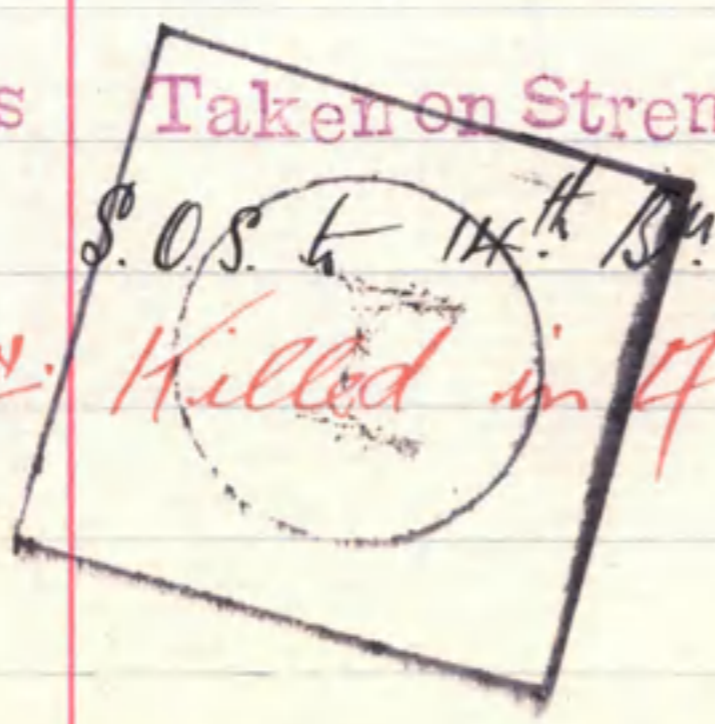 s Taken on Stren
S.O.S. to 14th Bn.
Killed in A
I